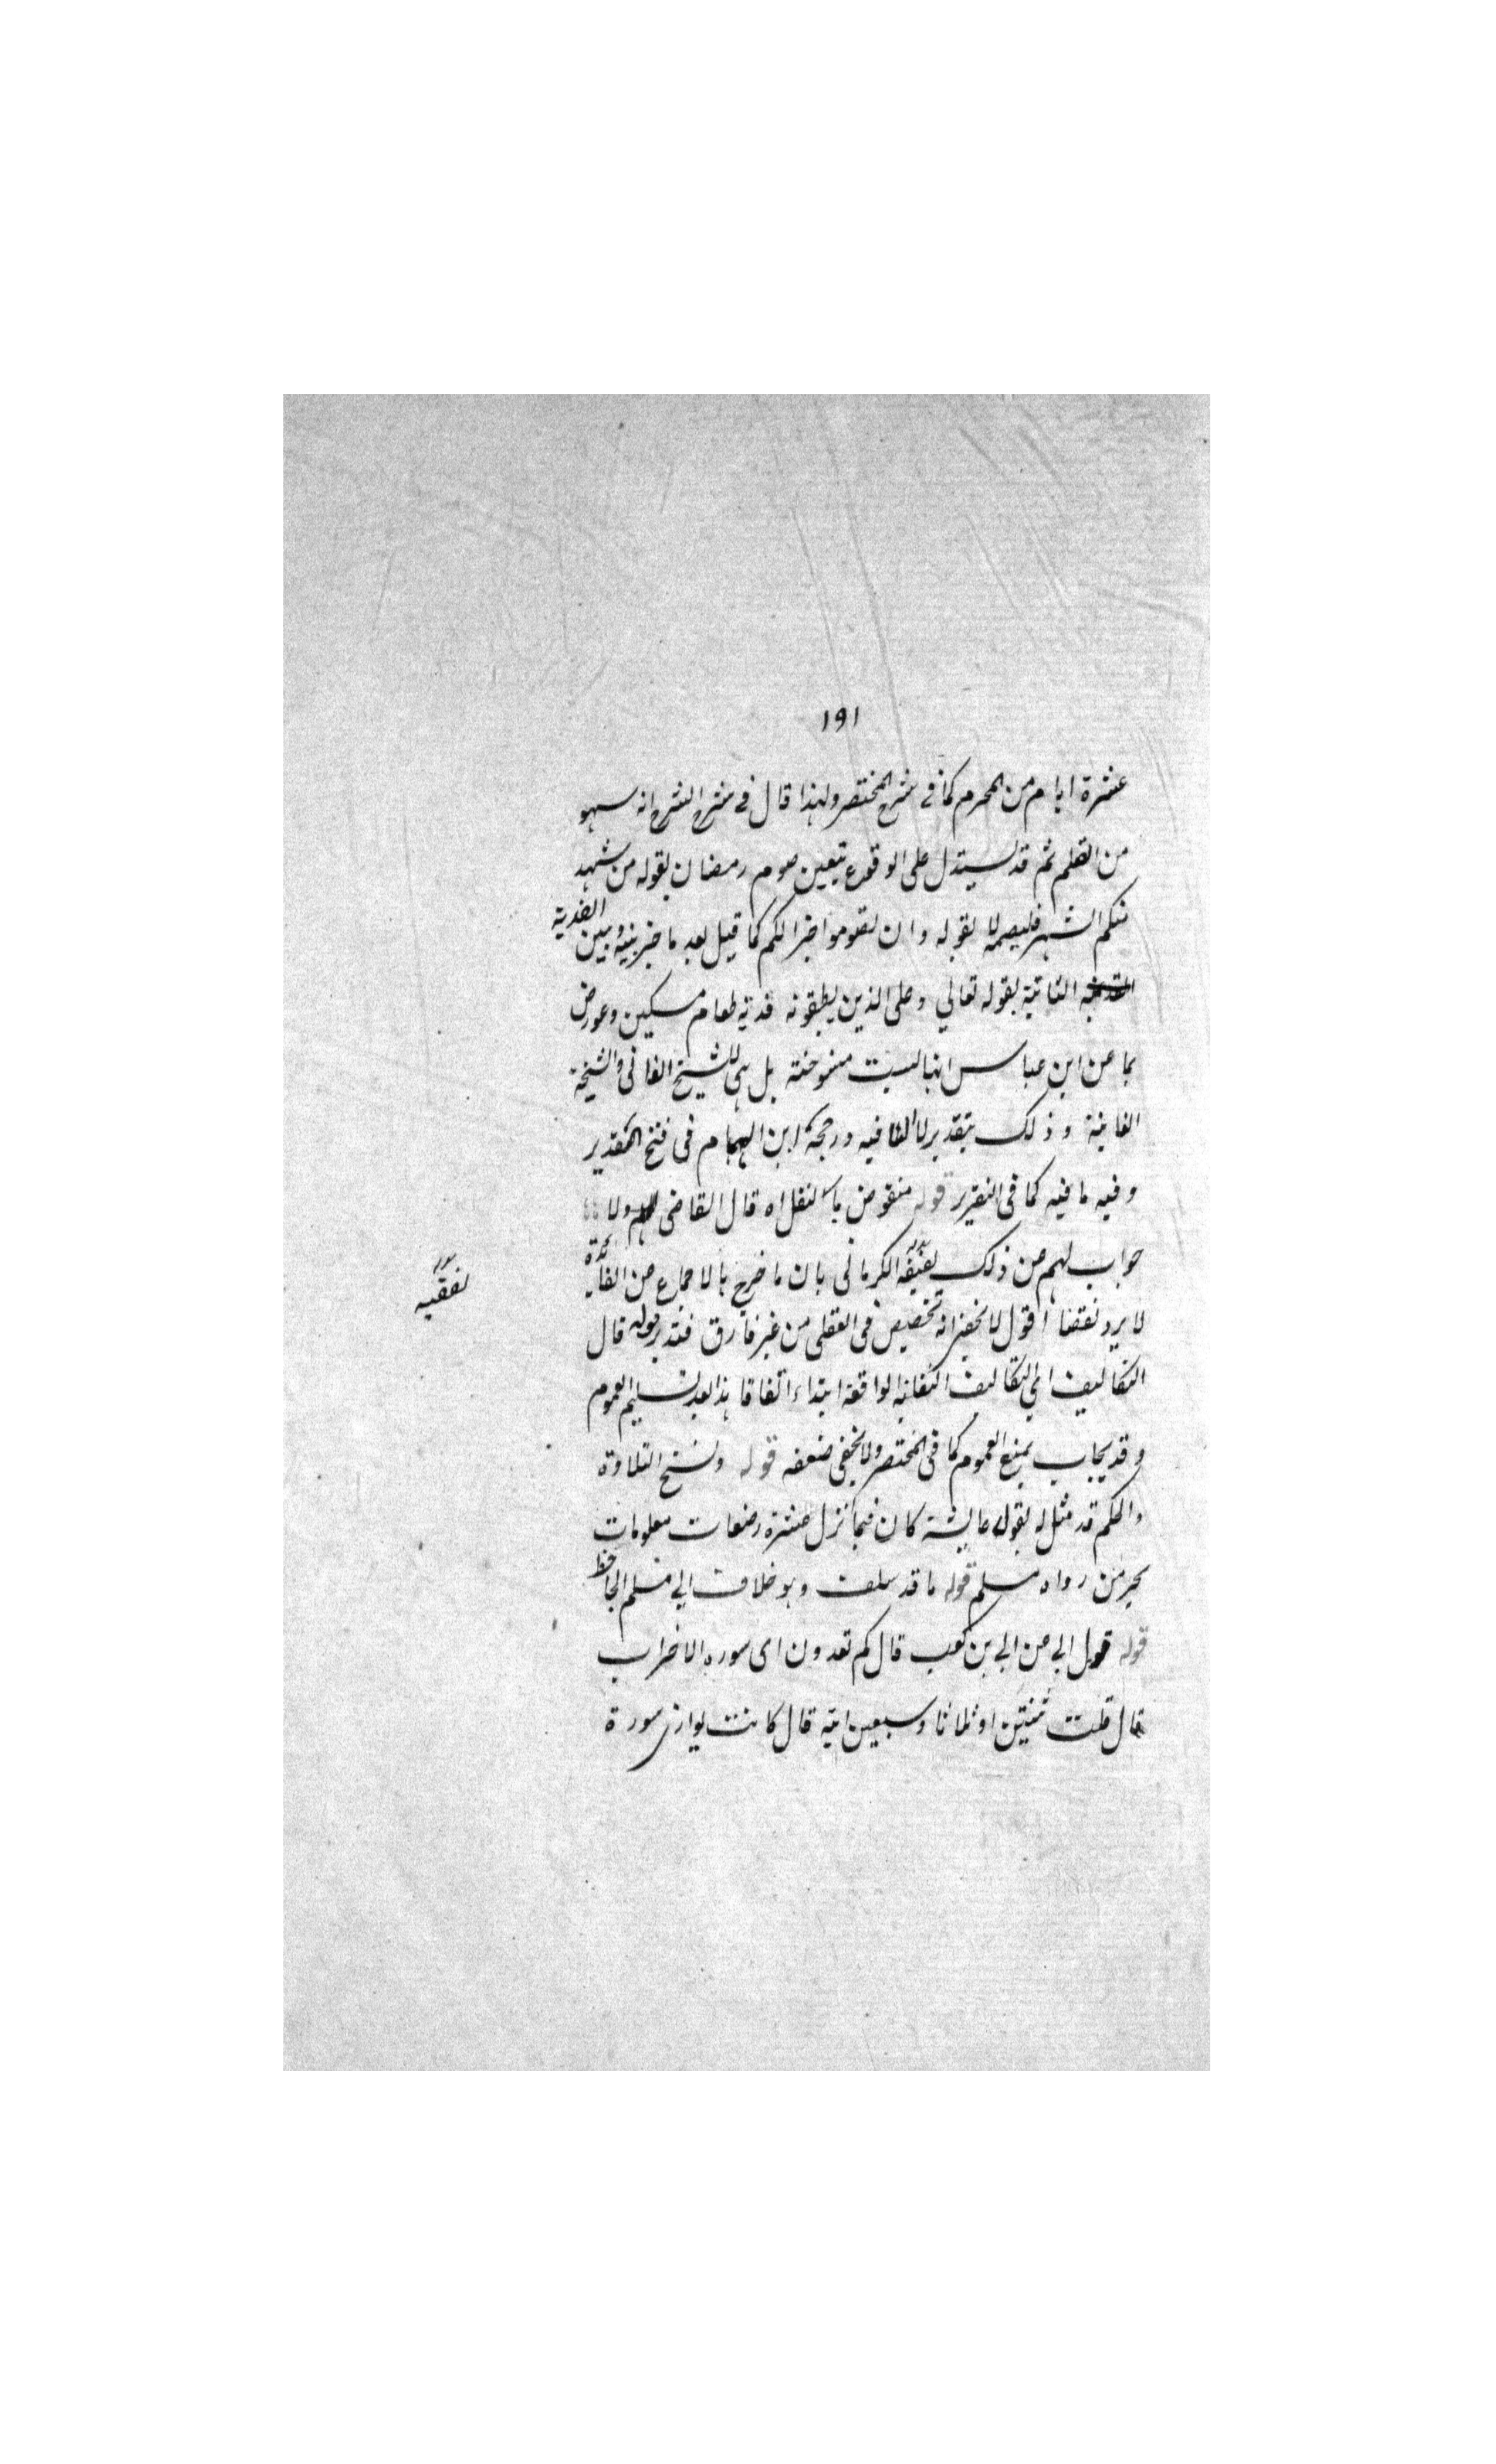 ١٩١
عشرة ايام من المحرم كما فى شرح المختصر ولهذا قال فى شرح الشرح انه سهو
من القلم ثم قد يستدل على الوقوع بتعين صوم رمضان بقوله من شهد
منكم الشهر فليصمه لا بقوله وان تصوموا خير الكم كما قيل بعد ما خير بينه وبين الفدية
الثابتة بقوله تعالي وعلى الذين يطيقونه فدية طعام مسكين وعورض
بما عن ابن عباس انها ليست منسوخة بل هى للشيخ الفانى والشيخة
الفانية وذلك بتقدير لا النافيه ورجحه ابن الهمام فى فتح القدير
وفيه ما فيه كما فى التقرير قوله منقوض بالنفل اه قال القاضى ولا
جواب لهم عن ذلك الكرمانى بان ما خرج بالاجماع عن الفائدة
لا يرد نقضا اقول لا يخفى انه تخصيص فى العقلى من غير فارق فتدبر قوله قال
التكاليف اي التكاليف الواقعة ابتداء اتفاقا هذا بعد تسليم العموم
وقد يجاب بمنع العموم كما فى المختصر ولا يخفى ضعفه قوله ونسخ التلاوة
والحكم قد مثل له بقول عايشة كان فيما انزل عشرة رضعات معلومات
يحرمن رواه مسلم قوله ما قد سلف وهو خلاف ابي مسلم الجاحظ
قوله قول ابي عن ابي بن كعب قال كم تعدون اى سوره الاحزاب
قال قلت ثنتين او ثلاثا وسبعين اية قال كانت يوازى سورة